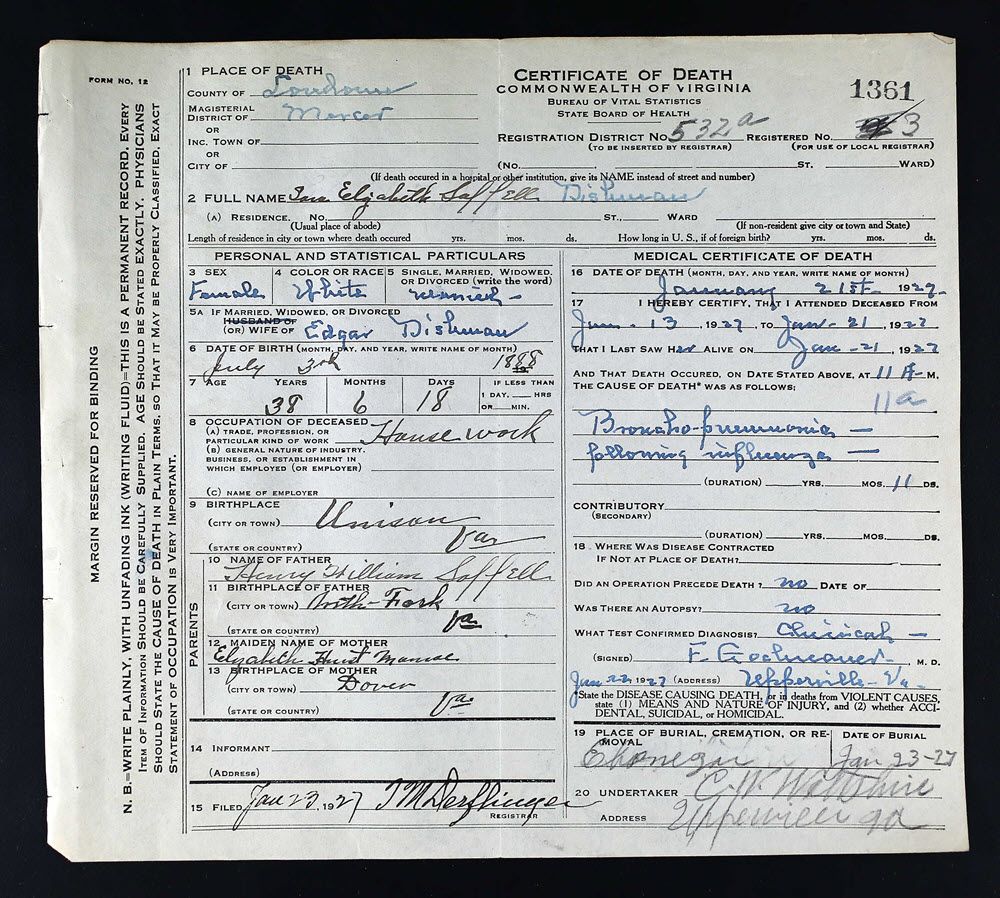 FORM NO. 12
MARGIN RESERVED FOR BINDING
N. B.=WRITE PLAINLY, WITH UNFADING INK (WRITING FLUID)=THIS IS A PERMANENT RECORD. EVERY
ITEM OF INFORMATION SHOULD BE CAREFULLY SUPPLIED. AGE SHOULD BE STATED EXACTLY. PHYSICIANS
SHOULD STATE THE CAUSE OF DEATH IN PLAIN TERMS, SO THAT IT MAY BE PROPERLY CLASSIFIED. EXACT
STATEMENT OF OCCUPATION IS VERY IMPORTANT.
1 PLACE OF DEATH
COUNTY OF Loudoun
MAGISTERIAL
DISTRICT OF Mercer
OR
INC. TOWN OF
OR
CITY OF
CERTIFICATE OF DEATH
COMMONWEALTH OF VIRGINIA
BUREAU OF VITAL STATISTICS
STATE BOARD OF HEALTH
1361
REGISTRATION DISTRICT No. 532a REGISTERED NO. 3
(TO BE INSERTED BY REGISTRAR) (FOR USE OF LOCAL REGISTRAR)
(No. ST. WARD)
(If death occurred in a hospital or other institution, give its NAME instead of street and number)
2 FULL NAME Elizabeth Saffell Dishman
(A) RESIDENCE. No. ST., WARD
(Usual place of abode) (If non-resident give city or town and State)
Length of residence in city or town where death occured yrs. mos. ds. How long in U. S., if of foreign birth? yrs. mos. ds.
PERSONAL AND STATISTICAL PARTICULARS
3 SEX 4 COLOR OR RACE 5 SINGLE, MARRIED, WIDOWED,
OR DIVORCED (write the word)
Female White married
5A IF MARRIED, WIDOWED, OR DIVORCED
HUSBAND OF
(OR) WIFE OF Edgar Dishman
6 DATE OF BIRTH (MONTH, DAY, AND YEAR, WRITE NAME OF MONTH)
July 3rd 1888
7 AGE YEARS MONTHS DAYS IF LESS THAN
1 DAY, HRS
OR MIN.
38 6 18
8 OCCUPATION OF DECEASED
(A) TRADE, PROFESSION, OR
PARTICULAR KIND OF WORK House work
(B) GENERAL NATURE OF INDUSTRY,
BUSINESS, OR ESTABLISHMENT IN
WHICH EMPLOYED (OR EMPLOYER)
(C) NAME OF EMPLOYER
9 BIRTHPLACE
(CITY OR TOWN) Unison
(STATE OR COUNTRY) Va
PARENTS
10 NAME OF FATHER
Henry William Saffell
11 BIRTHPLACE OF FATHER
(CITY OR TOWN) North-Fork
(STATE OR COUNTRY) Va
12 MAIDEN NAME OF MOTHER
Elizabeth Hurst
13 BIRTHPLACE OF MOTHER
(CITY OR TOWN) Dover
(STATE OR COUNTRY) Va
14 INFORMANT
(ADDRESS)
15 FILED Jan 23, 1927 T M Derflinger
REGISTRAR
MEDICAL CERTIFICATE OF DEATH
16 DATE OF DEATH (MONTH, DAY, AND YEAR, WRITE NAME OF MONTH)
January 21st 1927
17 I HEREBY CERTIFY, THAT I ATTENDED DECEASED FROM
13, 1927, TO Jan-21, 1927
THAT I LAST SAW Her ALIVE ON Jan-21, 1927
AND THAT DEATH OCCURED, ON DATE STATED ABOVE, AT 11 A M.
THE CAUSE OF DEATH* WAS AS FOLLOWS:
11a
Broncho-pneumonia
following influenza
(DURATION) YRS. MOS. 11 DS.
CONTRIBUTORY
(SECONDARY)
(DURATION) YRS. MOS. DS.
18 WHERE WAS DISEASE CONTRACTED
IF NOT AT PLACE OF DEATH?
DID AN OPERATION PRECEDE DEATH? no DATE OF
WAS THERE AN AUTOPSY? no
WHAT TEST CONFIRMED DIAGNOSIS? Clinical
(SIGNED) F Gochnauer M. D.
Jan 22, 1927 (ADDRESS) Upperville Va.
*State the DISEASE CAUSING DEATH, or in deaths from VIOLENT CAUSES,
state (1) MEANS AND NATURE OF INJURY, and (2) whether ACCI-
DENTAL, SUICIDAL, or HOMICIDAL.
19 PLACE OF BURIAL, CREMATION, OR RE-
MOVAL DATE OF BURIAL
Ebenezer Jan 23-27
20 UNDERTAKER C. W.
ADDRESS Upperville Va